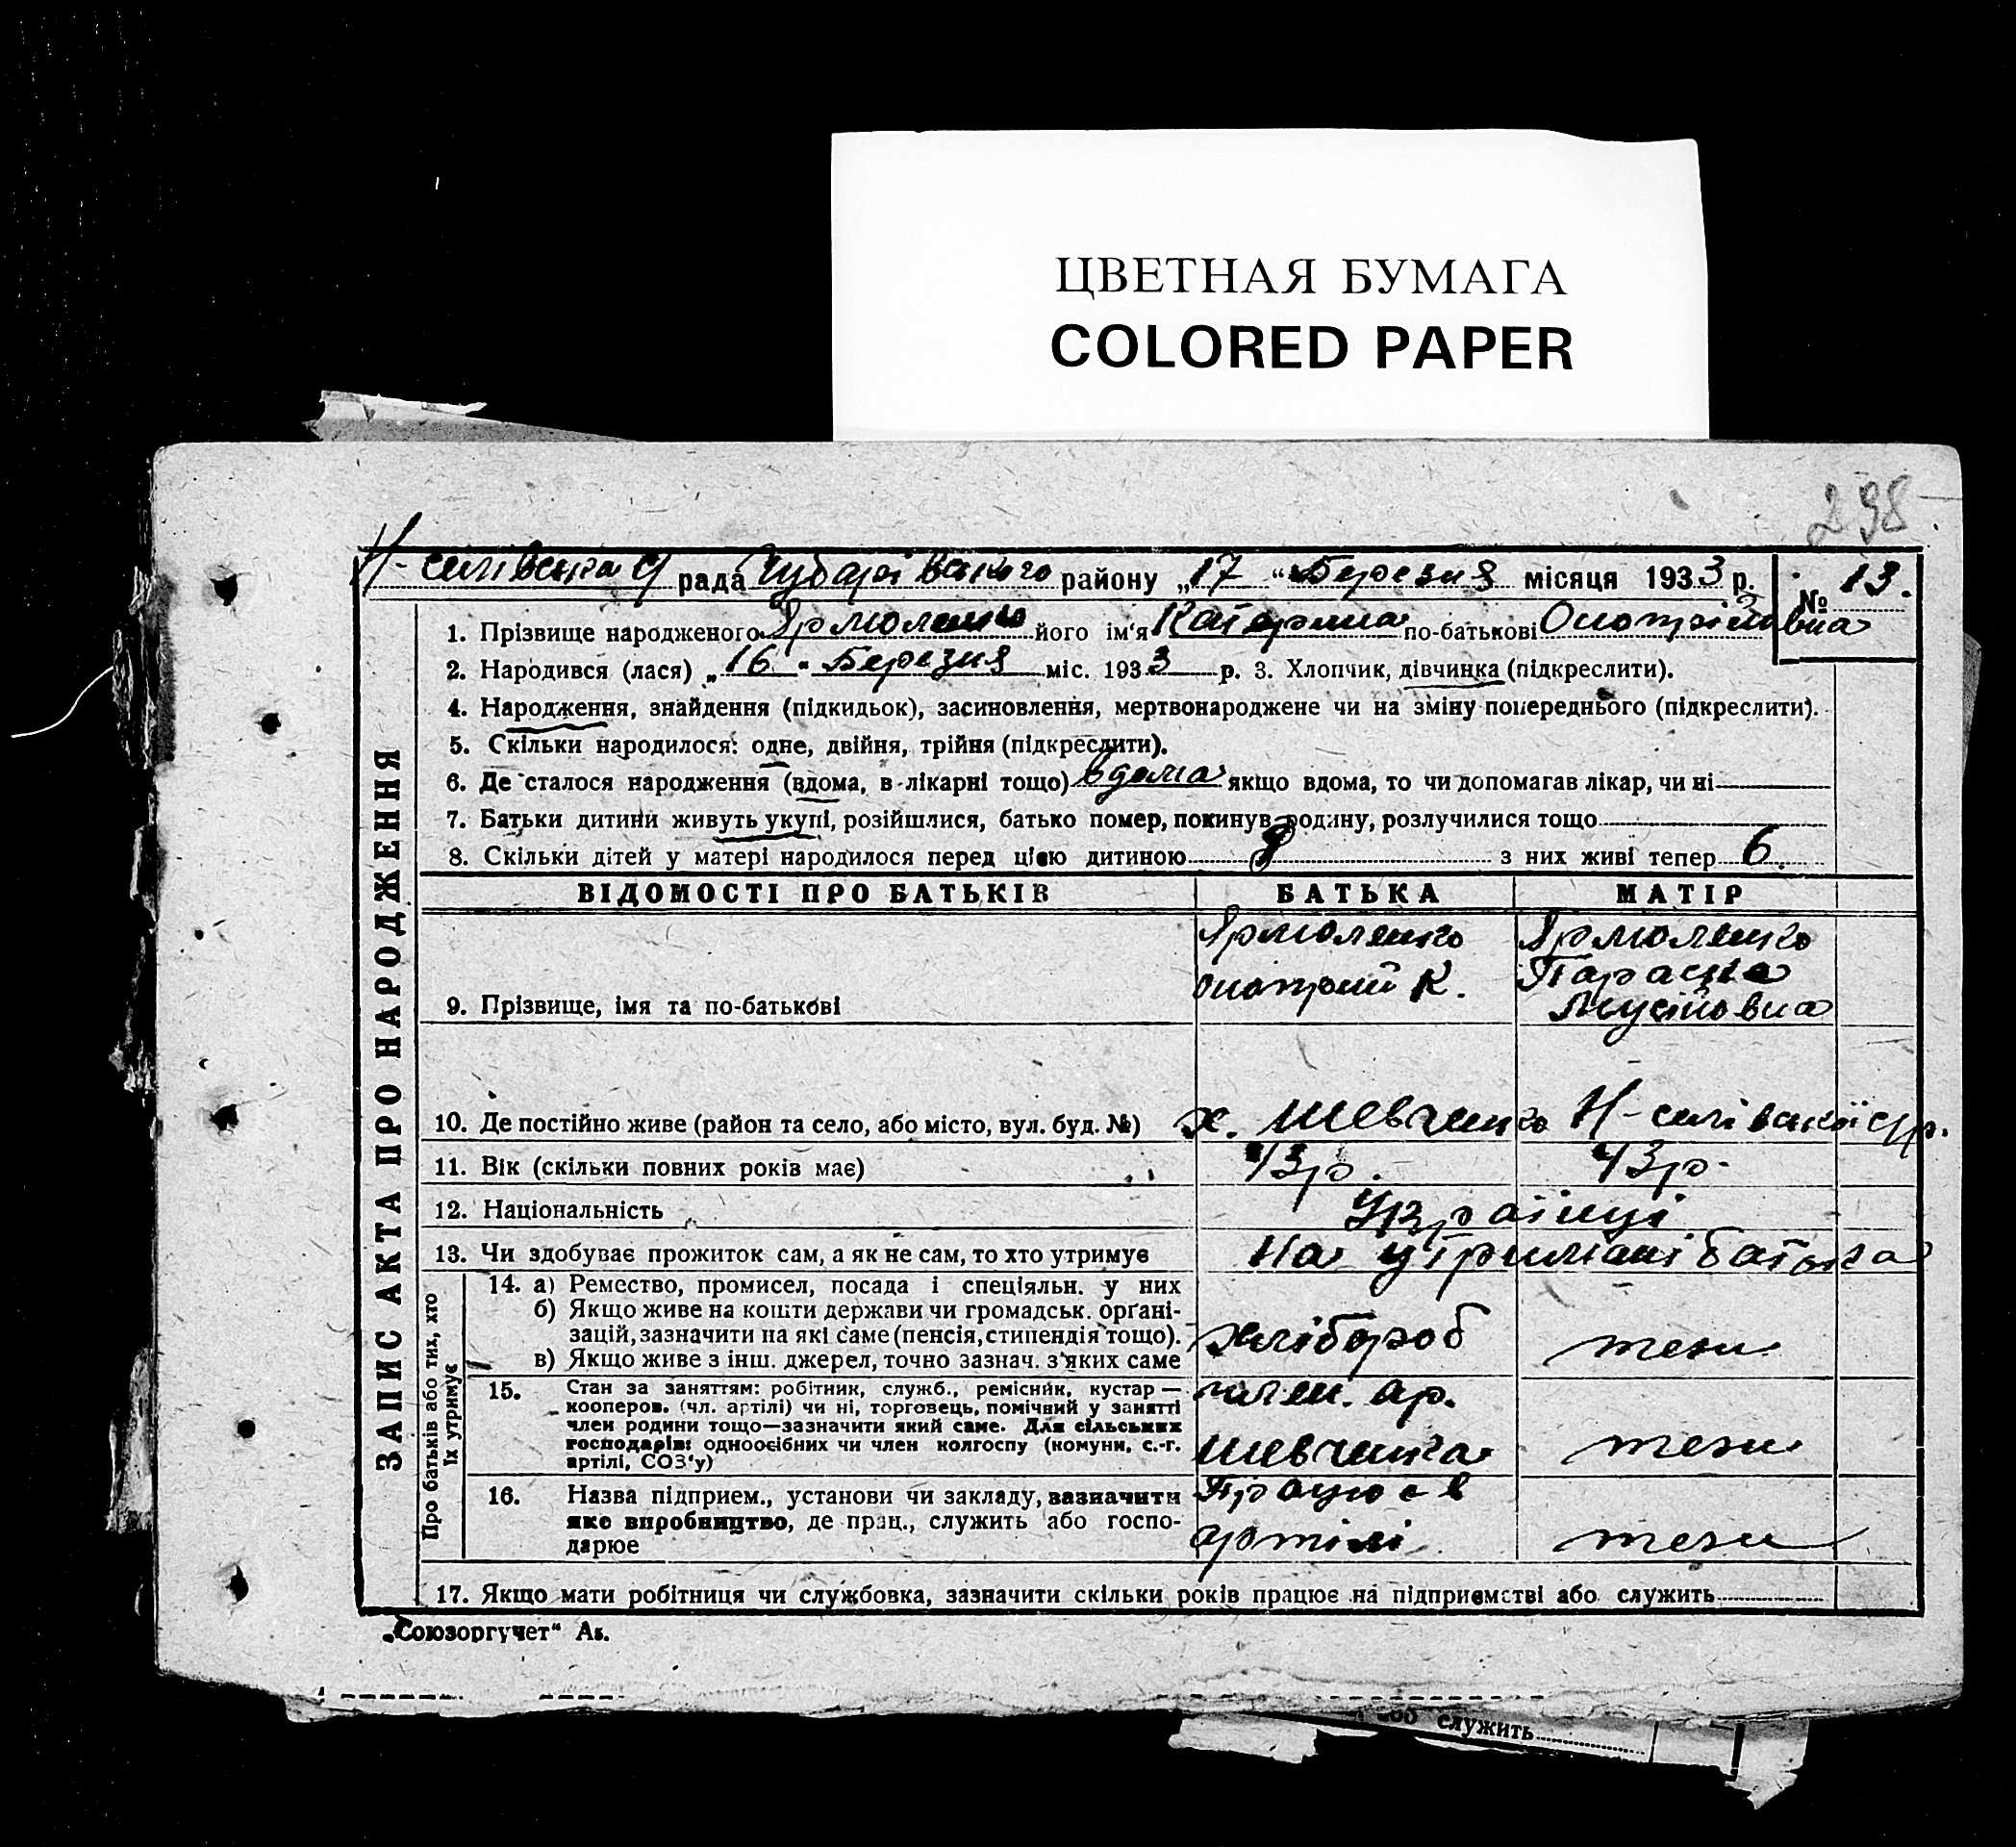 ЦВЕТНАЯ БУМАГА
COLORED PAPER
298
Н-селівська С/ рада Чубарівського району „17“ Березня місяця 1933 р. № 13.
1. Прізвище народженого Ярмоленко його ім'я Катерина по-батькові Онопріївна
2. Народився (лася) „16“ Березня міс. 1933 р. 3. Хлопчик, дівчинка (підкреслити).
4. Народження, знайдення (підкидьок), засиновлення, мертвонароджене чи на зміну попереднього (підкреслити).
5. Скільки народилося: одне, двійня, трійня (підкреслити).
6. Де сталося народження (вдома, в лікарні тощо) вдома якщо вдома, то чи допомагав лікар, чи ні
7. Батьки дитини живуть укупі, розійшлися, батько помер, покинув родину, розлучилися тощо
8. Скільки дітей у матері народилося перед цією дитиною з них живі тепер 6.
ВІДОМОСТІ ПРО БАТЬКІВ БАТЬКА МАТІР
ЗАПИС АКТА ПРО НАРОДЖЕННЯ
9. Прізвище, імя та по-батькові
Ярмоленко
Онопрій К.
Ярмоленко
Параска
Мусіївна
10. Де постійно живе (район та село, або місто, вул. буд. №) х. Шевченко Н-селівської с/р.
11. Вік (скільки повних років має) 43р. 43р.
12. Національність Українці
13. Чи здобуває прожиток сам, а як не сам, то хто утримує На утримані батька
Про батьків або тих, хто
їх утримує
14. а) Ремество, промисел, посада і спеціяльн. у них
б) Якщо живе на кошти держави чи громадськ. органі-
зацій, зазначити на які саме (пенсія, стипендія тощо).
в) Якщо живе з інш. джерел, точно зазнач. з'яких саме
хлібороб тези
15. Стан за заняттям: робітник, служб., ремісник, кустар —
кооперов. (чл. артілі) чи ні, торговець, помічний у занятті
член родини тощо—зазначити який саме. Для сільських
господарів: одноосібних чи член колгоспу (комуни, с.-г.
артілі, СОЗ'у)
член. ар.
Шевченка тези
16. Назва підприєм., установи чи закладу, зазначити
яке виробництво, де прац., служить або госпо-
дарює
Працює в
артілі тези
17. Якщо мати робітниця чи службовка, зазначити скільки років працює на підприємстві або служить
„Союзоргучет“ Ав.
служить